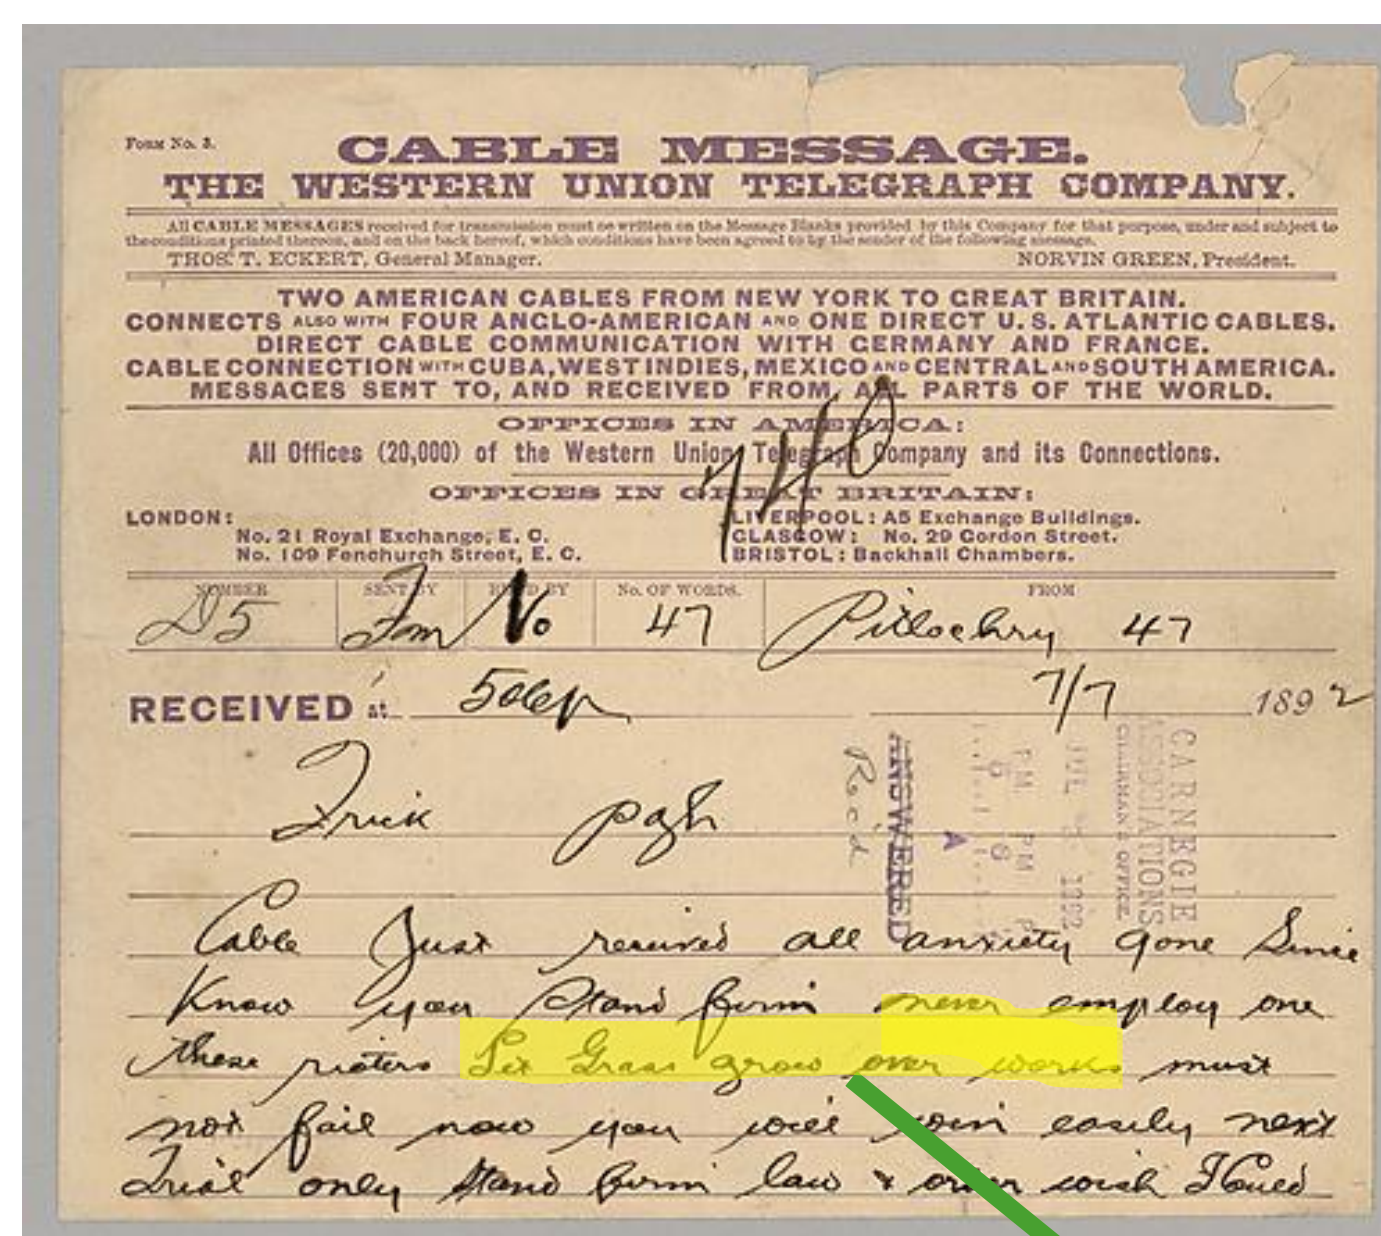 Form No. 3.
CABLE MESSAGE.
THE WESTERN UNION TELEGRAPH COMPANY.
All CABLE MESSAGES received for transmission must be written on the Message Blanks provided by this Company for that purpose, under and subject to
the conditions printed thereon, and on the back hereof, which conditions have been agreed to by the sender of the following message.
THOS. T. ECKERT, General Manager. NORVIN GREEN, President.
TWO AMERICAN CABLES FROM NEW YORK TO GREAT BRITAIN.
CONNECTS ALSO WITH FOUR ANGLO-AMERICAN AND ONE DIRECT U. S. ATLANTIC CABLES.
DIRECT CABLE COMMUNICATION WITH GERMANY AND FRANCE.
CABLE CONNECTION WITH CUBA, WEST INDIES, MEXICO AND CENTRAL AND SOUTH AMERICA.
MESSAGES SENT TO, AND RECEIVED FROM, ALL PARTS OF THE WORLD.
OFFICES IN AMERICA:
All Offices (20,000) of the Western Union Telegraph Company and its Connections.
740
OFFICES IN GREAT BRITAIN:
LONDON: LIVERPOOL: A5 Exchange Buildings.
No. 21 Royal Exchange, E. C. GLASGOW: No. 29 Gordon Street.
No. 109 Fenchurch Street, E. C. BRISTOL: Backhall Chambers.
NUMBER SENT BY REC'D BY No. OF WORDS. FROM
D5 No 47 Pitlochry 47
RECEIVED at 7/7 1892
Frick pgh
ANSWERED
Rec'd
CARNEGIE
ASSOCIATIONS
CHAIRMAN'S OFFICE.
Cable Just received all anxiety gone Since
Know you Stand firm never employ one
these rioters Let Grass grow over works must
not fail now you will win easily next
Trial only Stand firm law & order wish I Could